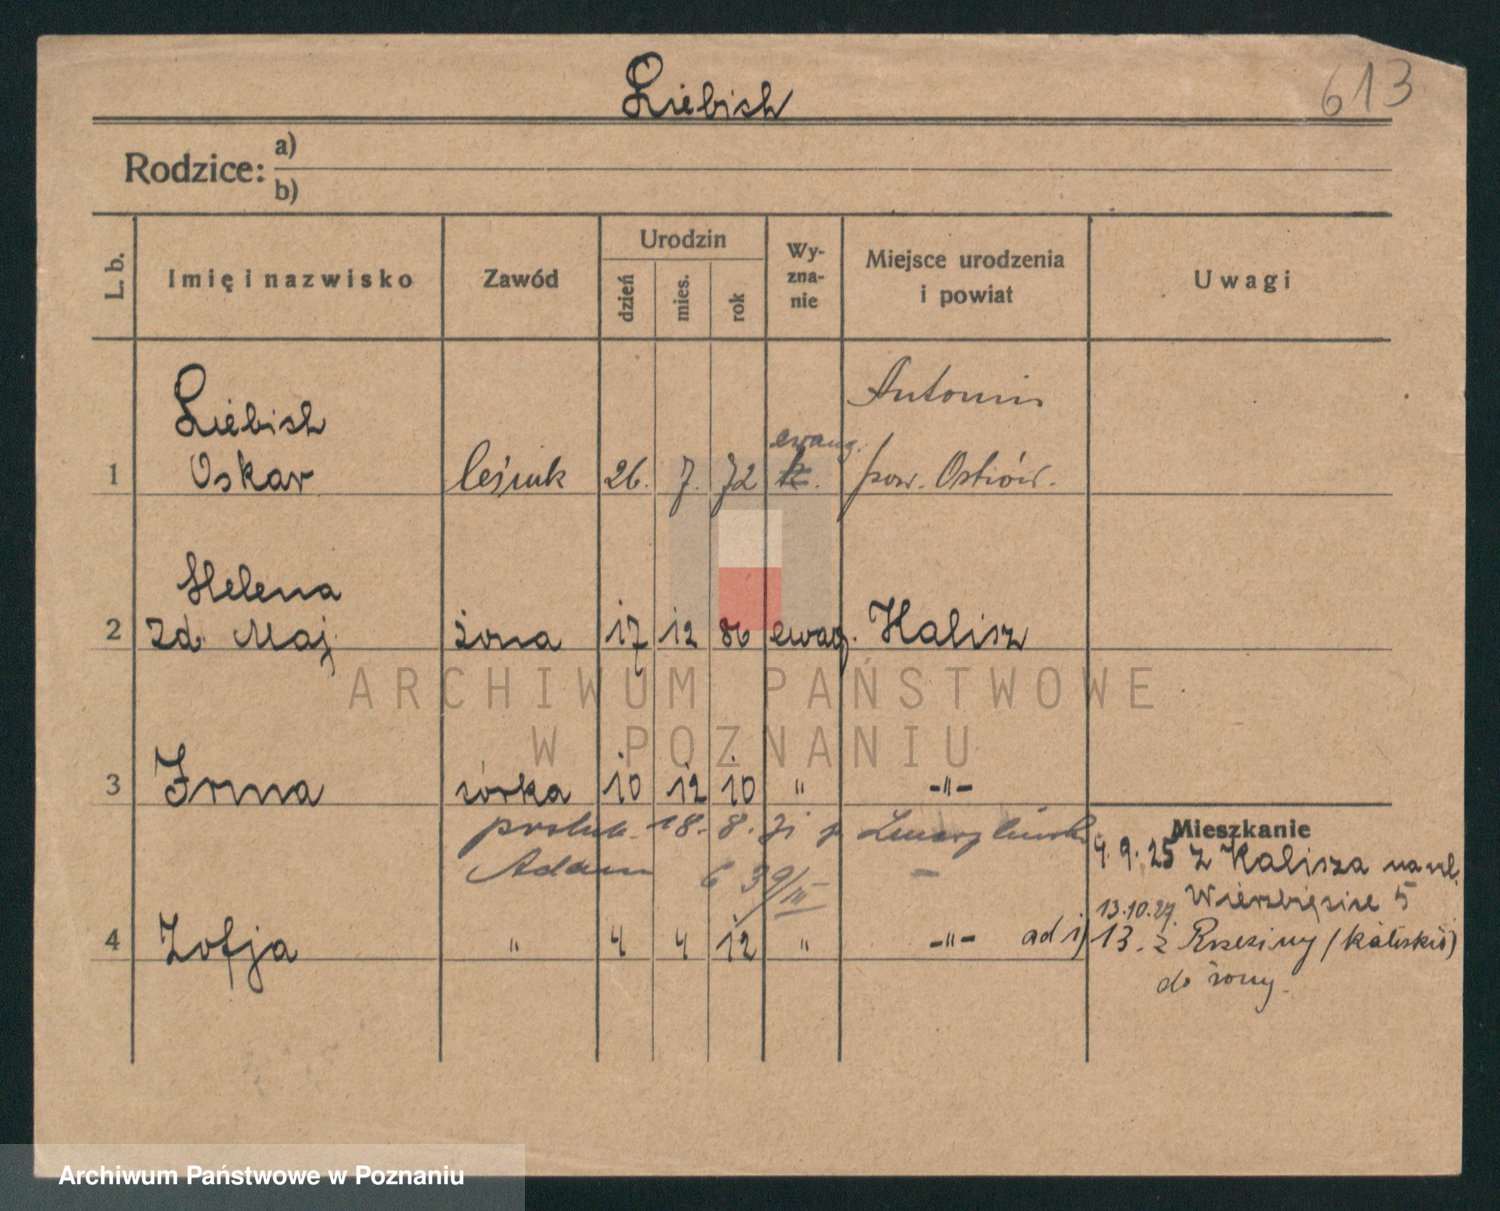 Liebish
613
Rodzice: a)
b)
L. b.
Imię i nazwisko
Zawód
Urodzin
dzień
mies.
rok
Wy-
zna-
nie
Miejsce urodzenia
i powiat
Uwagi
Liebish
Antonin
ewang.
1 Oskar leśnik 26. 7. 72 k. pow. Ostrów.
Helena
2 zd. Maj żona 17 12 86 ewag. Kalisz
ARCHIWUM PAŃSTWOWE
W POZNANIU
3 Irma córka 10 12 10 " -"-
poślub. 18. 8. 31 z
Adam 6 39/III
Mieszkanie
4. 9. 25 z Kalisza na ul.
Wierzbięcice 5
13.10.27.
4 Zofja " 4 4 12 " -"- ad 1) 13. z (kaliskie)
do żony.
Archiwum Państwowe w Poznaniu